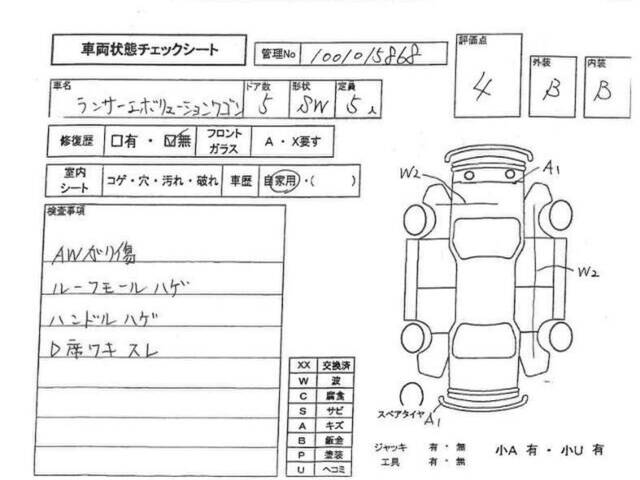 車両状態チェックシート
管理No 1001015868
評価点 4
外装 B
内装 B
車名 ランサーエボリューションワゴン
ドア数 5
形状 SW
定員 5人
修復歴 □有・☑無
フロントガラス A・X要す
室内シート コゲ・穴・汚れ・破れ
車歴 自家用・( )
検査事項
AWガリ傷
ルーフモール ハゲ
ハンドル ハゲ
D席ワキ スレ
XX 交換済
W 波
C 腐食
S サビ
A キズ
B 鈑金
P 塗装
U ヘコミ
W2
A1
W2
スペアタイヤ
A1
ジャッキ 有・無
工具 有・無
小A 有・小U 有